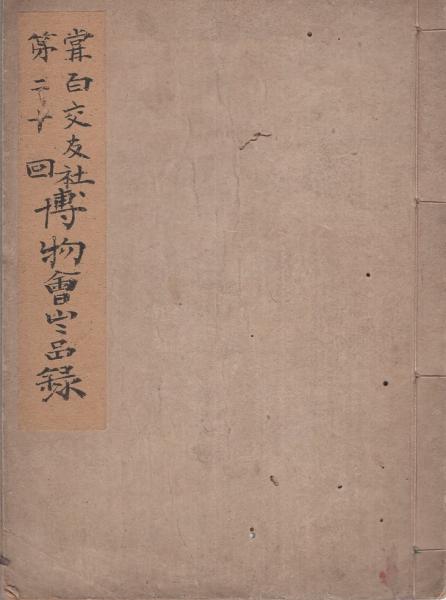 甞百交友社
第二十回
博物會出品録